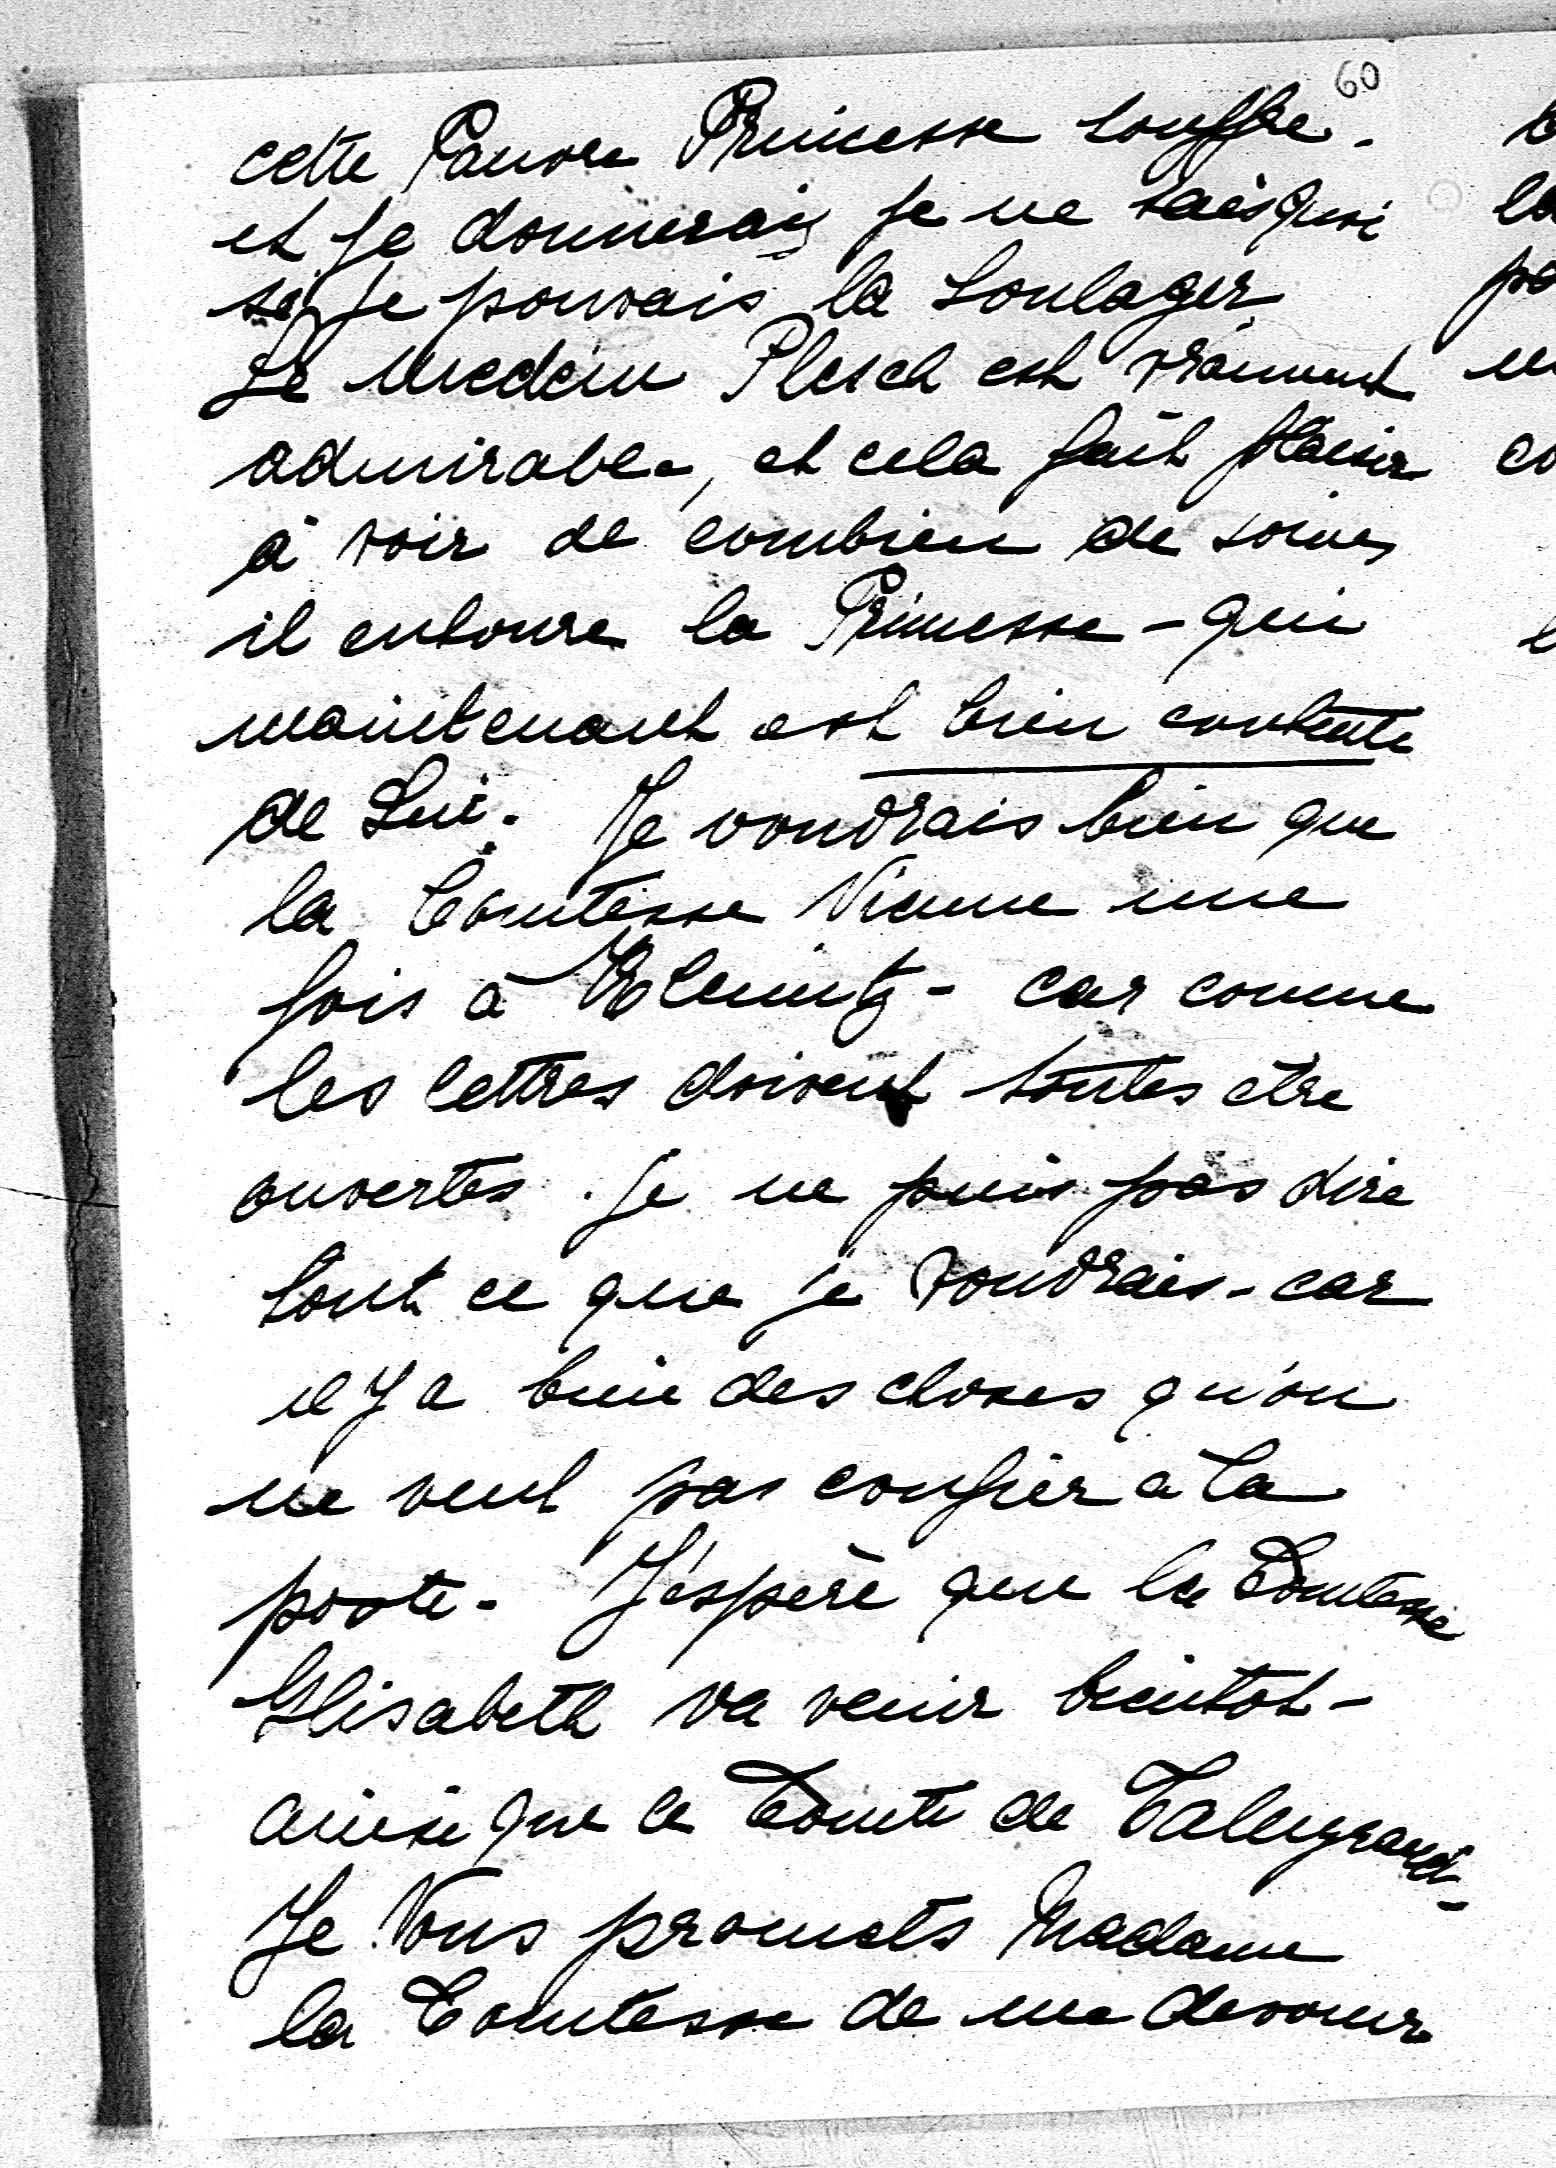 60
cette Pauvre Princesse souffre -
et je donnerais je ne sais quoi
si je pouvais la soulager
Le medecin Plesch est vraiment
admirable, et cela fait plaisir
à voir de combien de soins
il entoure la Princesse - qui
maintenant est bien contente
de Lui. Je voudrais bien que
la Comtesse Vienne une
fois à Kleinitz - car comme
les lettres doivent toutes être
ouvertes. je ne puis pas dire
tout ce que je voudrais - car
il y a bien des choses qu'on
ne veut pas confier a la
poste - J'éspère que la Comtesse
Elisabeth va venir bientot -
ainsi que le Comte de Taleyrand -
Je Vous promets Madame
la Comtesse de me devouer